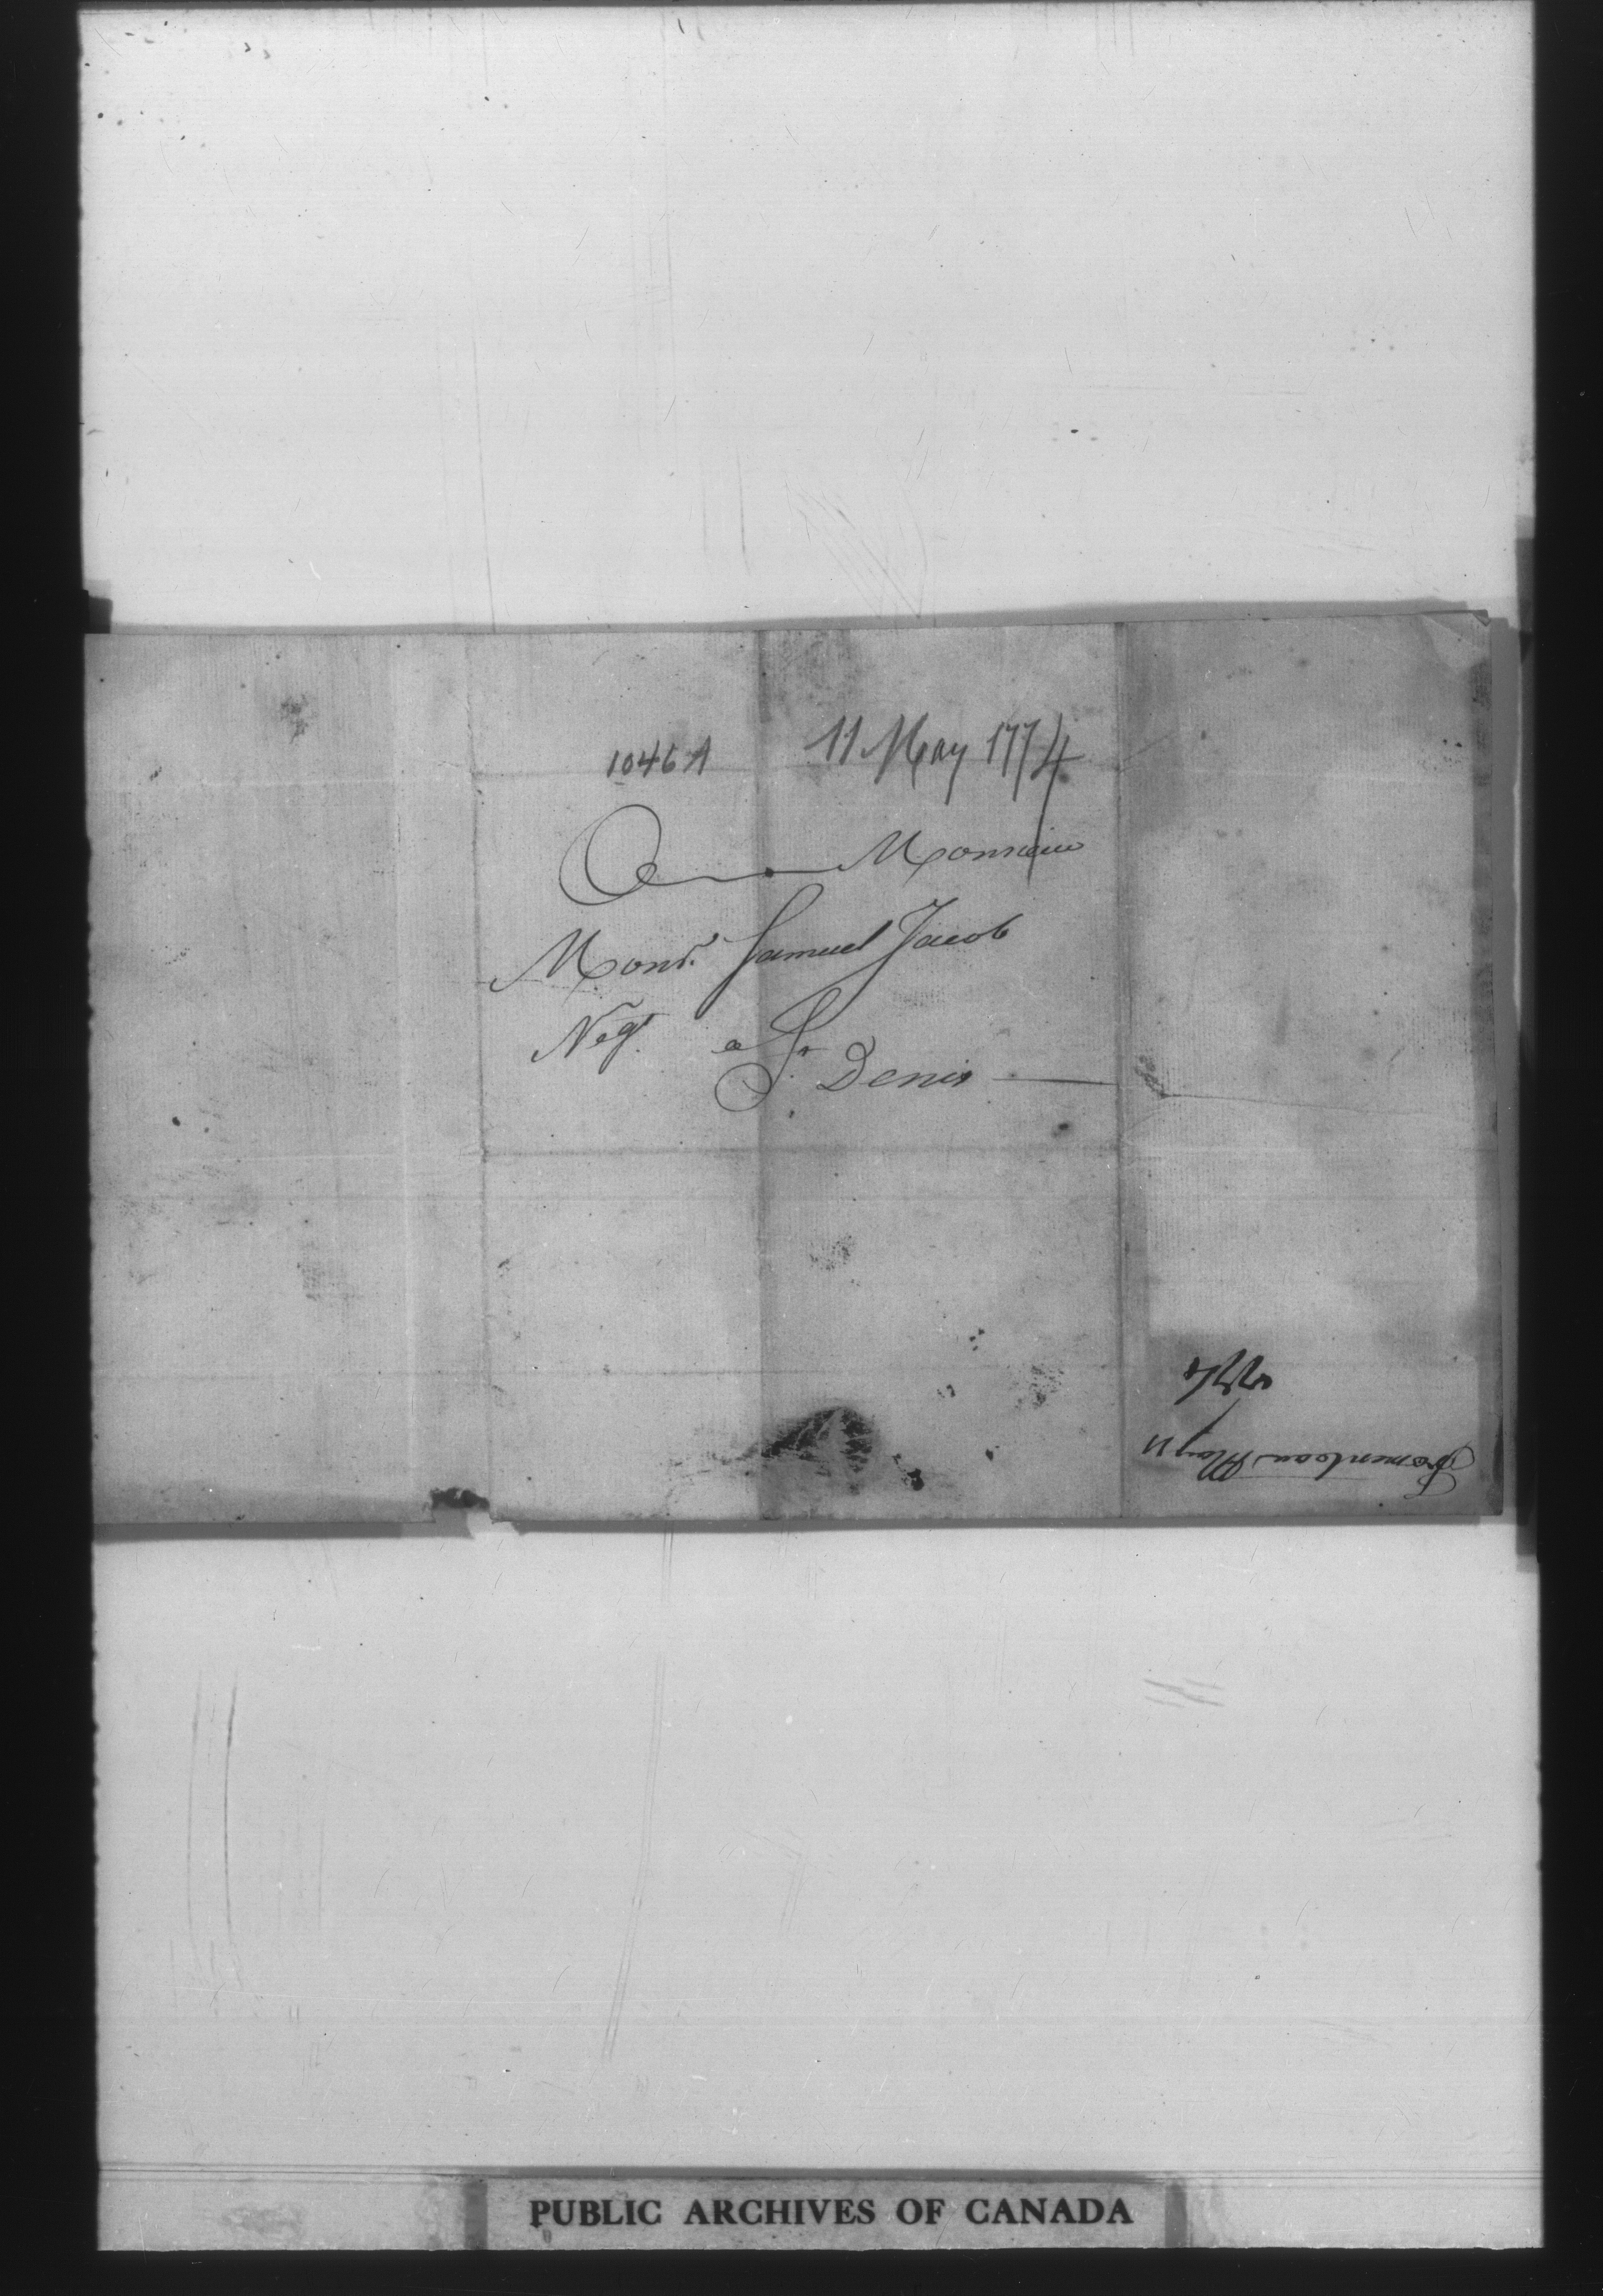 1046 A
11 May 1774
A Monsieur
Monsr. Samuel Jacob
Negt. a St. Denis
Fromenteau May 11
1774
PUBLIC ARCHIVES OF CANADA